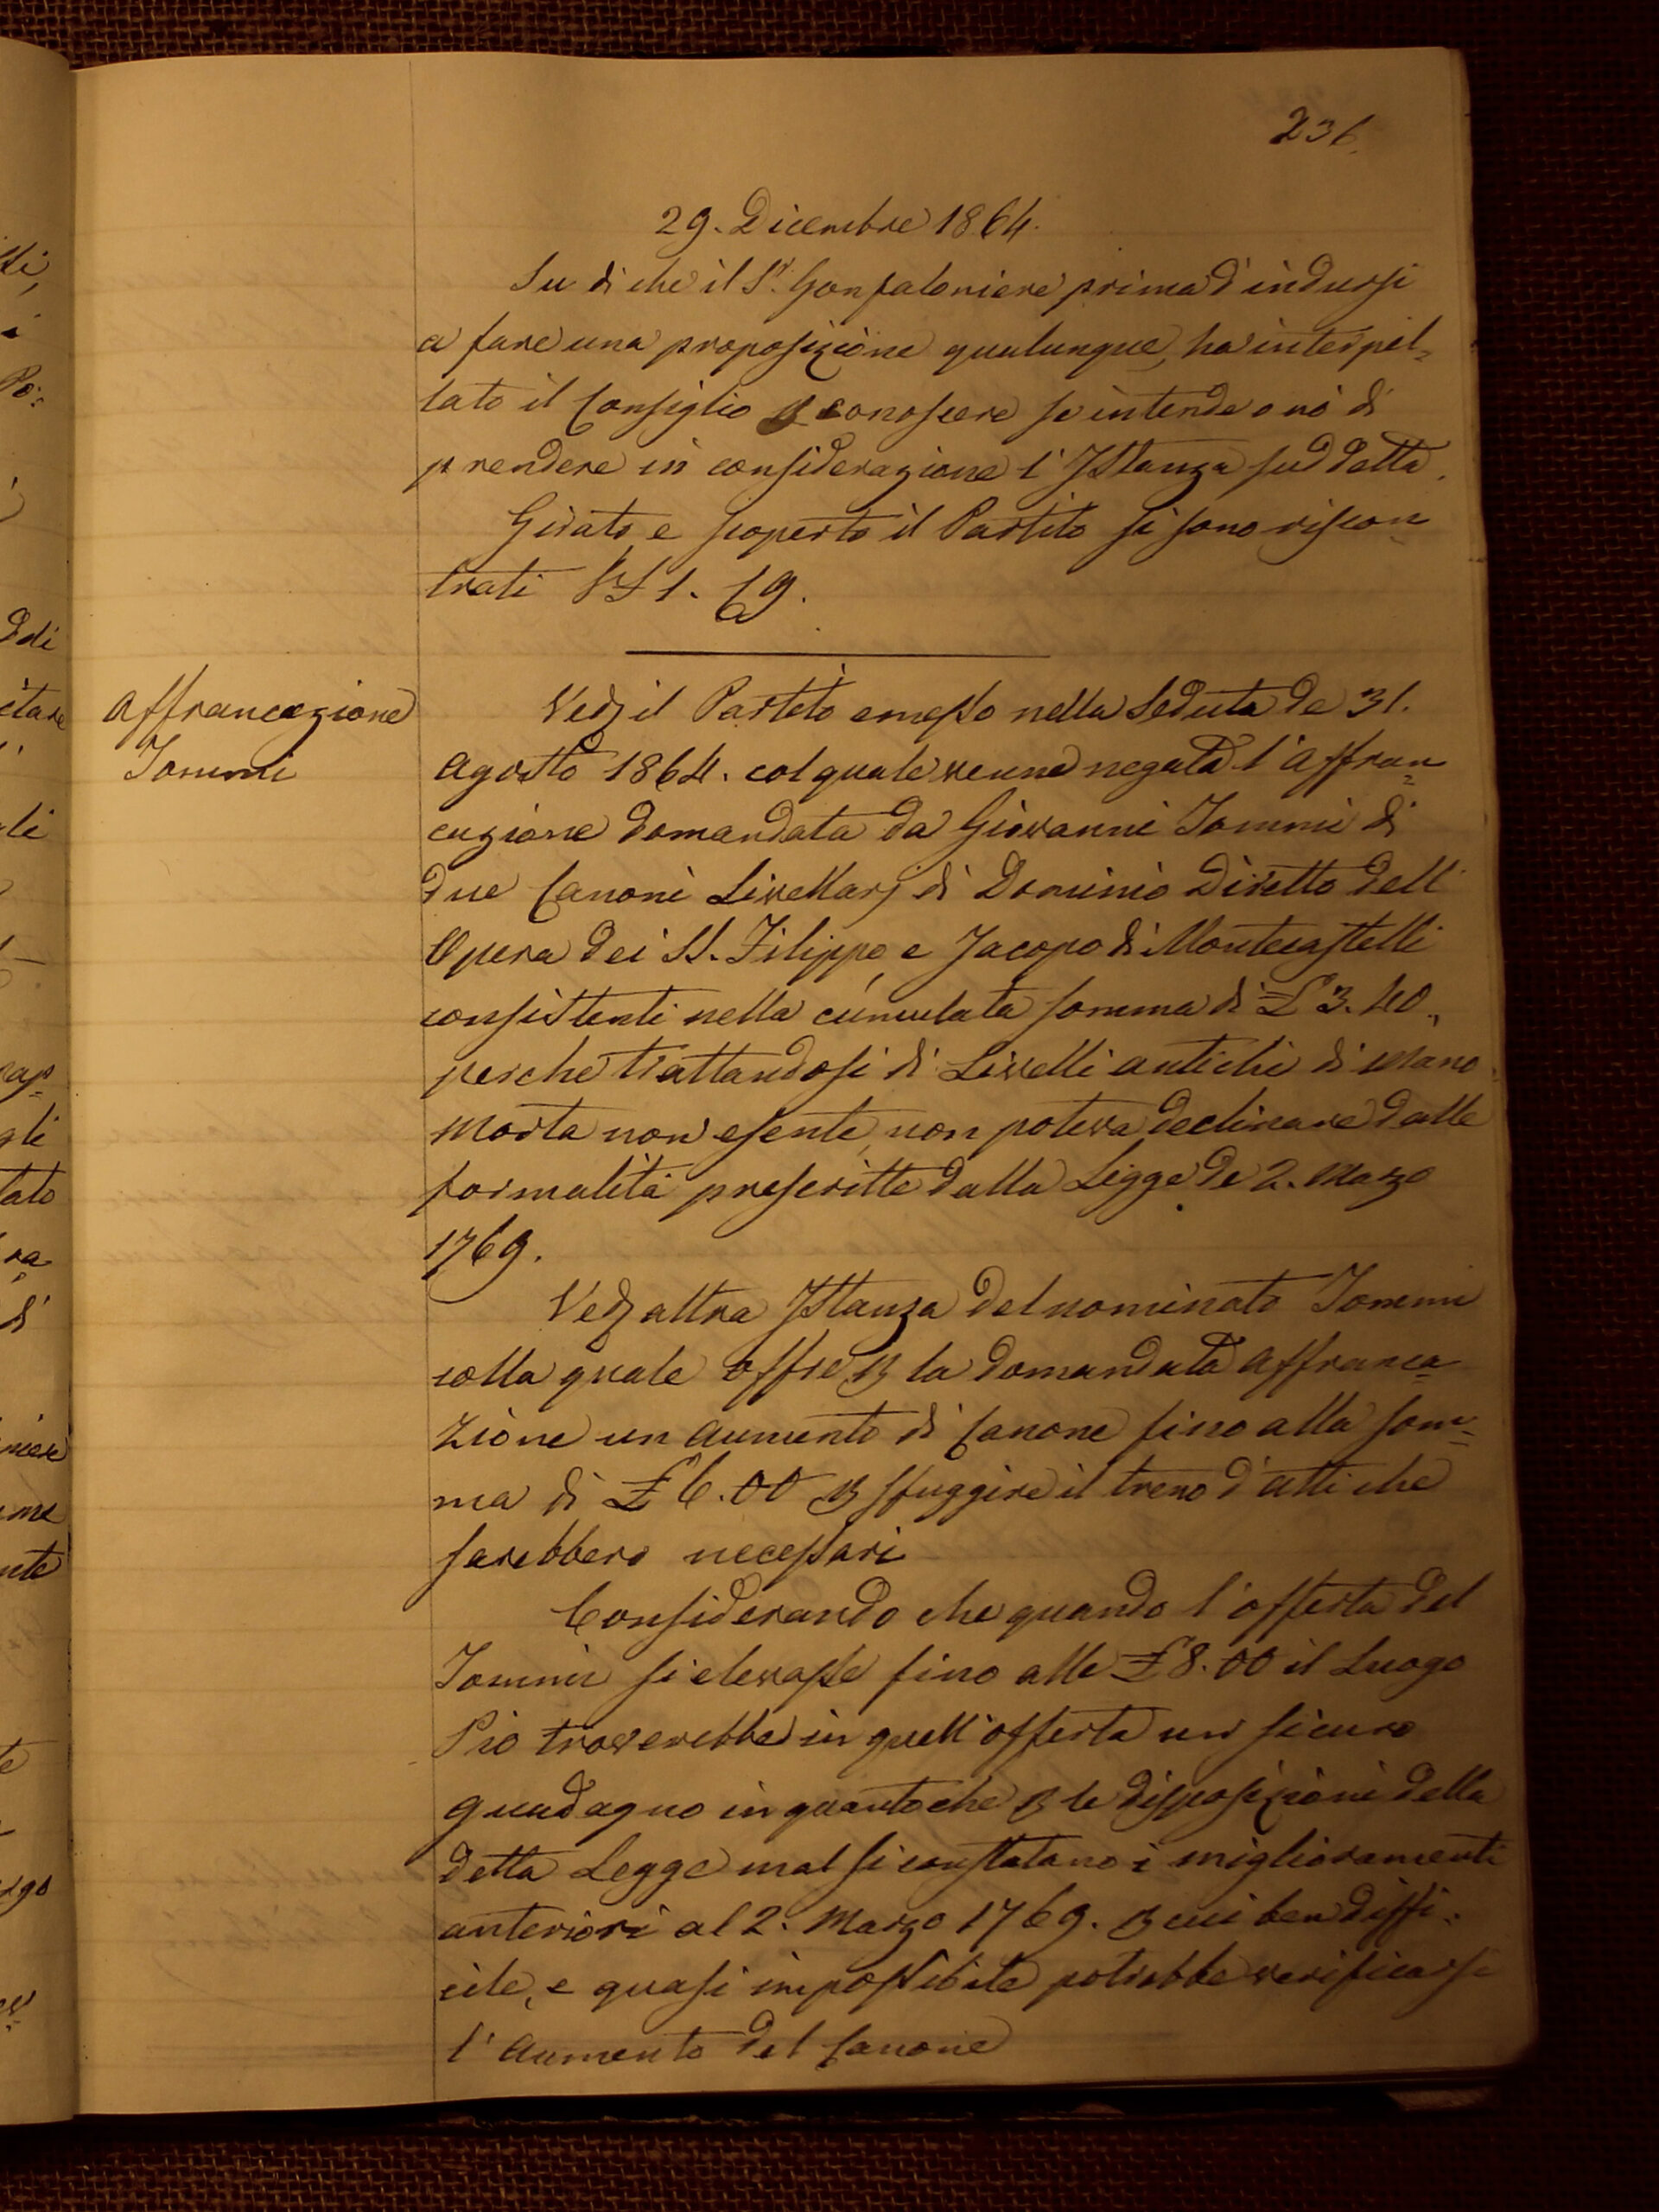 236.
29. Dicembre 1864.
Su di che il S.r Gonfaloniere prima d'indursi
a fare una proposizione qualunque, ha interpel=
lato il Consiglio p conoscere se intende o nò di
prendere in considerazione l'Istanza suddetta.
Girato e scoperto il Partito si sono riscon=
trati VF 1. C 9.
Affrancazione
Tommi
Ved.i il Partito emesso nella Seduta de 31.
Agosto 1864. col quale venne negata l'Affran=
cazione domandata da Giovanni Tommi di
due Canoni Livellarj di Dominio Diretto dell'
Opera dei SS. Filippo e Jacopo di Montecastelli
consistenti nella cumulata somma di £ 3. 40.,
perche trattandosi di Livelli antichi di Mano
Morta non esente, non poteva declinare dalle
formalità prescritte dalla Legge de 2. Marzo
1769.
Ved.i altra Istanza del nominato Tommi
colla quale offre p la domandata Affranca=
zione un aumento di Canone fino alla som=
ma di £ 6. 00 p sfuggire il treno d'atti che
sarebbero necessari
Considerando che quando l'offerta del
Tommi si elevasse fino alle £ 8. 00 il Luogo
Pio troverebbe in quell'offerta un sicuro
guadagno in quantoche p le disposizioni della
detta Legge mal si constatano i miglioramenti
anteriori al 2. Marzo 1769. p cui ben diffi=
cile, e quasi impossibile potrebbe verificarsi
l'Aumento del Canone